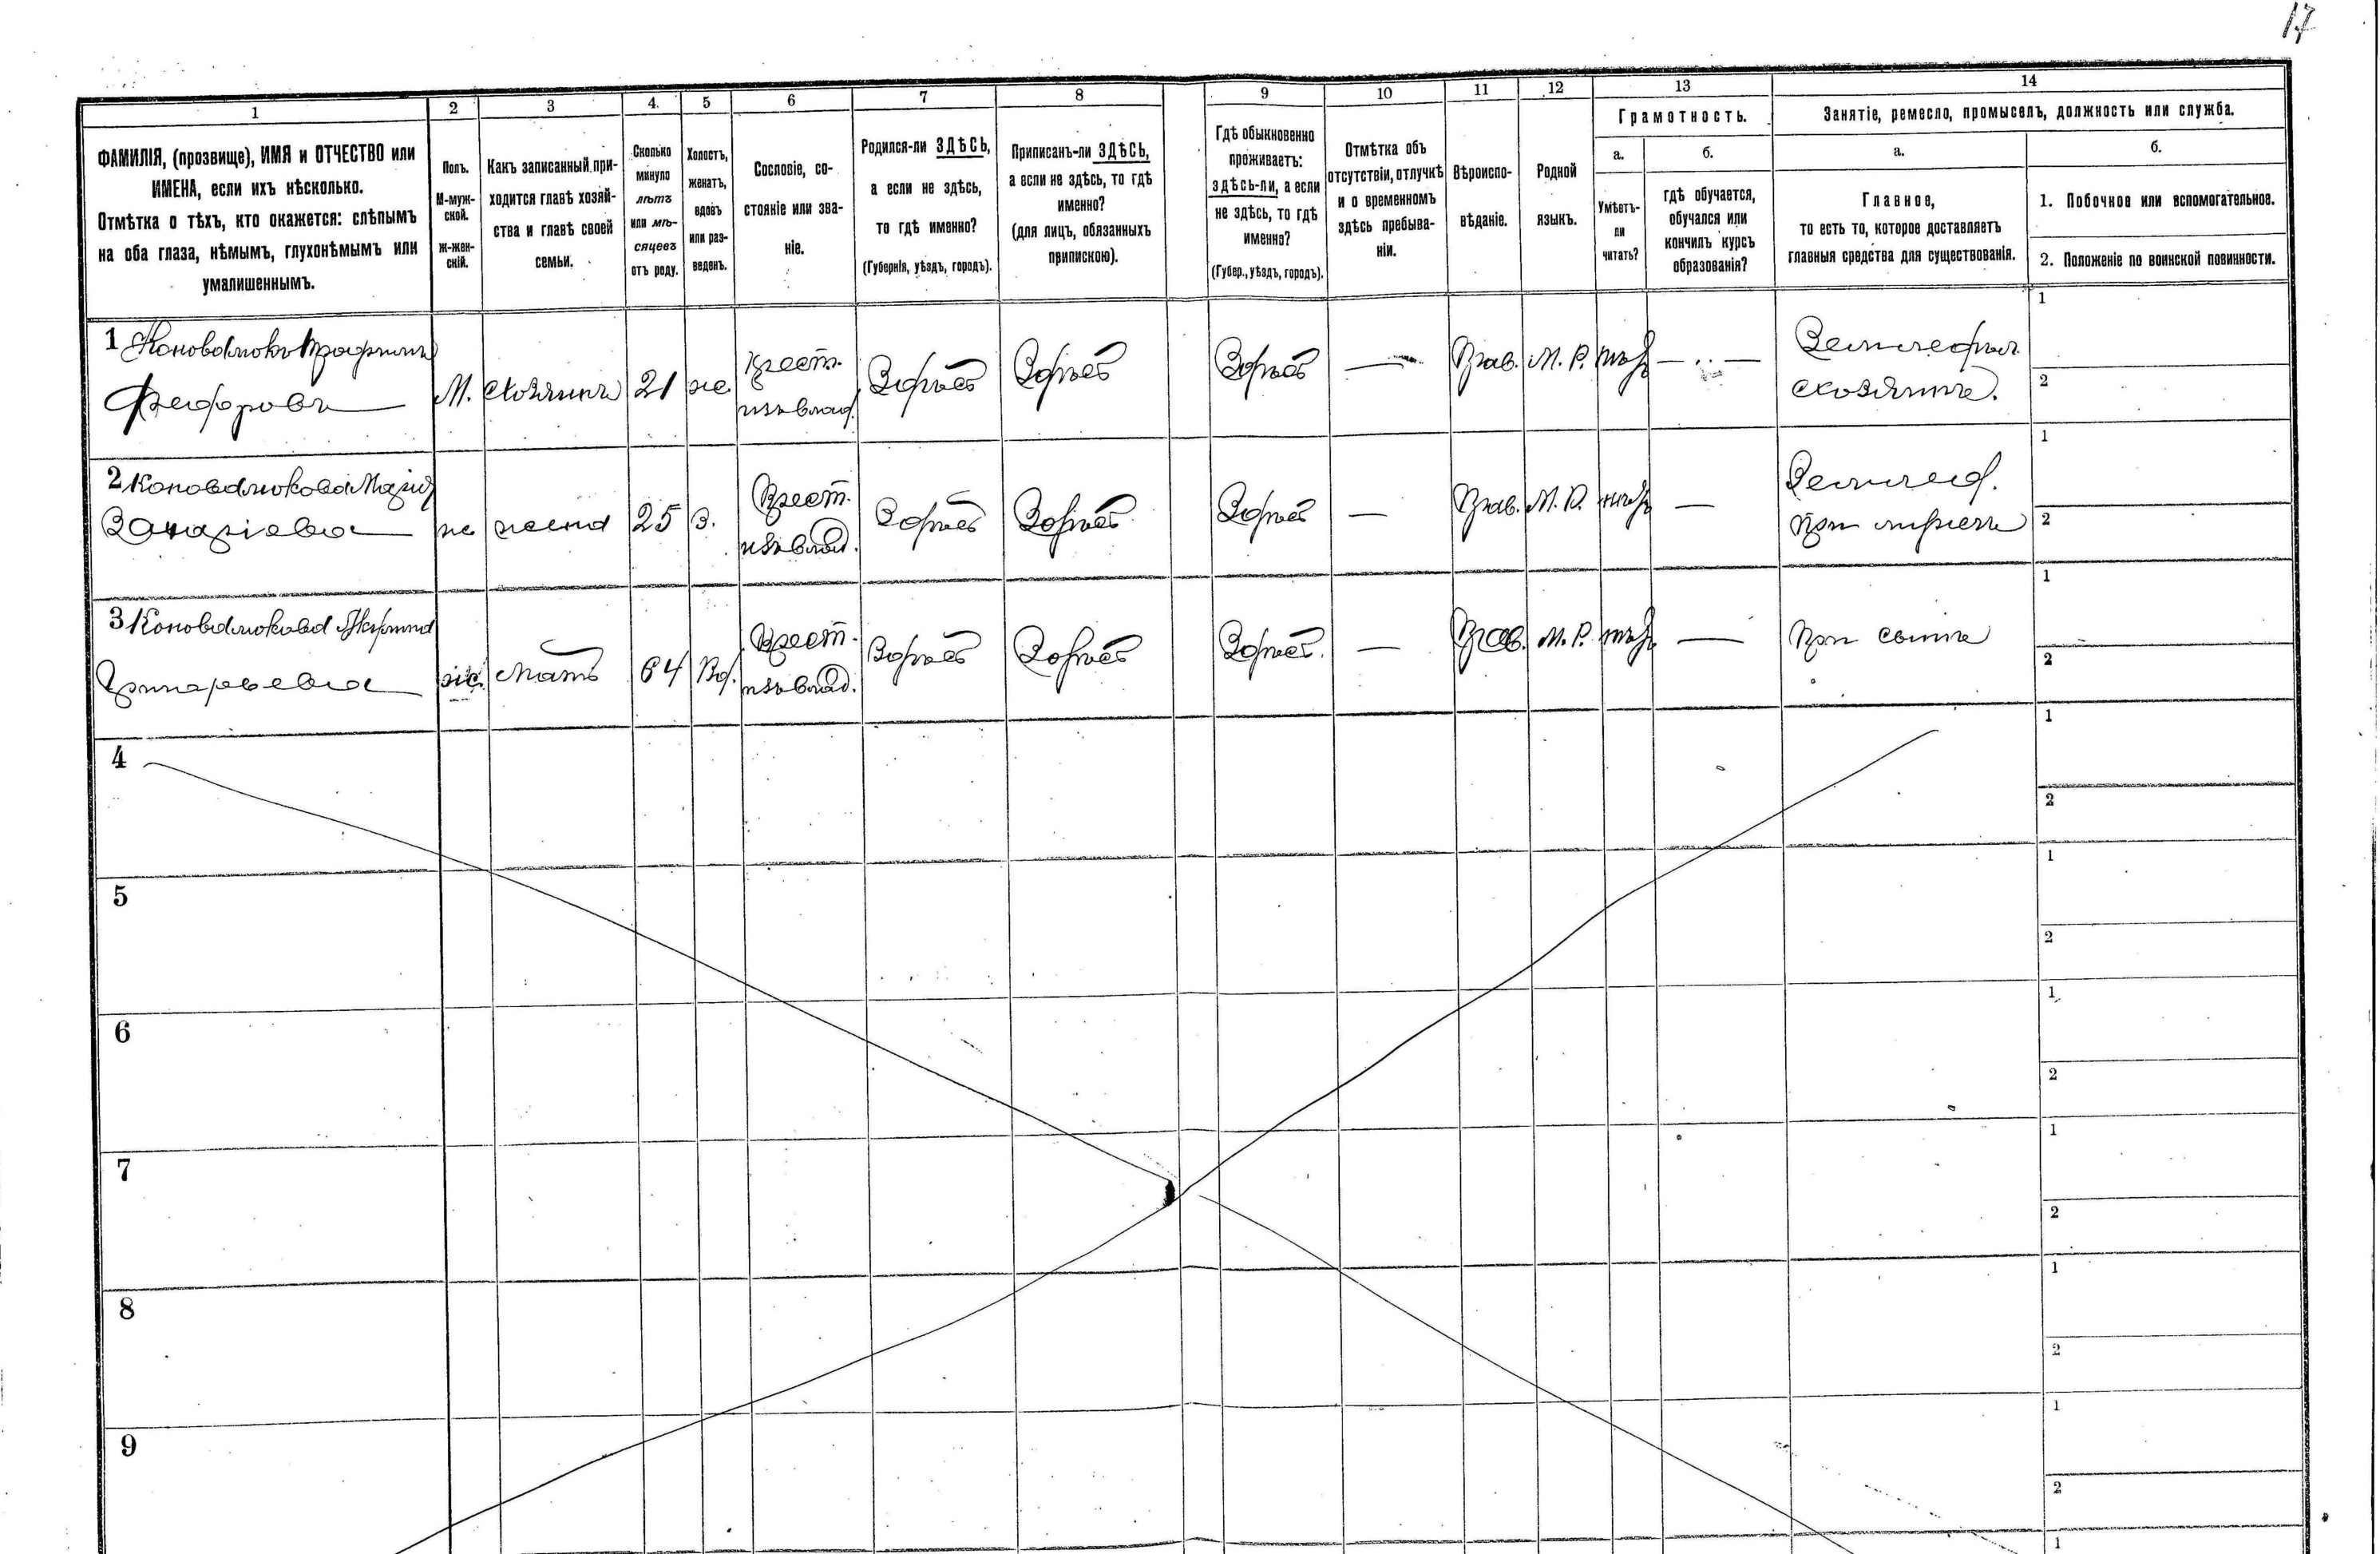 17
1 2 3 4. 5 6 7 8 9 10 11 12 13 14
ФАМИЛІЯ, (прозвище), ИМЯ и ОТЧЕСТВО или
ИМЕНА, если ихъ нѣсколько.
Отмѣтка о тѣхъ, кто окажется: слѣпымъ
на оба глаза, нѣмымъ, глухонѣмымъ или
умалишеннымъ.
Полъ.
М-муж-
ской.
Ж-жен-
скій.
Какъ записанный при-
ходится главѣ хозяй-
ства и главѣ своей
семьи.
Сколько
минуло
лѣтъ
или мѣ-
сяцевъ
отъ роду.
Холостъ,
женатъ,
вдовъ
или раз-
веденъ.
Сословіе, со-
стояніе или зва-
ніе.
Родился-ли ЗДѢСЬ,
а если не здѣсь,
то гдѣ именно?
(Губернія, уѣздъ, городъ).
Приписанъ-ли ЗДѢСЬ,
а если не здѣсь, то гдѣ
именно?
(для лицъ, обязанныхъ
припискою).
Гдѣ обыкновенно
проживаетъ:
здѣсь-ли, а если
не здѣсь, то гдѣ
именно?
(Губер., уѣздъ, городъ).
Отмѣтка объ
отсутствіи, отлучкѣ
и о временномъ
здѣсь пребыва-
ніи.
Вѣроиспо-
вѣданіе.
Родной
языкъ.
Грамотность.
а.
Умѣетъ-
ли
читать?
б.
гдѣ обучается,
обучался или
кончилъ курсъ
образованія?
Занятіе, ремесло, промыселъ, должность или служба.
а.
Главное,
то есть то, которое доставляетъ
главныя средства для существованія.
б.
1. Побочное или вспомогательное.
2. Положеніе по воинской повинности.
1 Коновалюкъ Трофимъ
Федоровъ
М. хозяинъ 21 ж
Крест.
изъ влад.
Здѣсь Здѣсь Здѣсь — Прав. М. Р. нѣтъ —
Земледѣл.
хозяинъ.
1
2
2 Коновалюкова Марія
Захаріева
ж жена 25 з.
Крест.
изъ влад.
Здѣсь Здѣсь Здѣсь — Прав. М. Р. нѣтъ —
Землед.
При мужѣ
1
2
3 Коновалюкова
Григорьева
ж. мать 64 Вд.
Крест.
изъ влад.
Здѣсь Здѣсь Здѣсь. — Прав. М. Р. нѣтъ —
При сынѣ
1
2
4
1
2
5
1
2
6
1
2
7
1
2
8
1
2
9
1
2
1